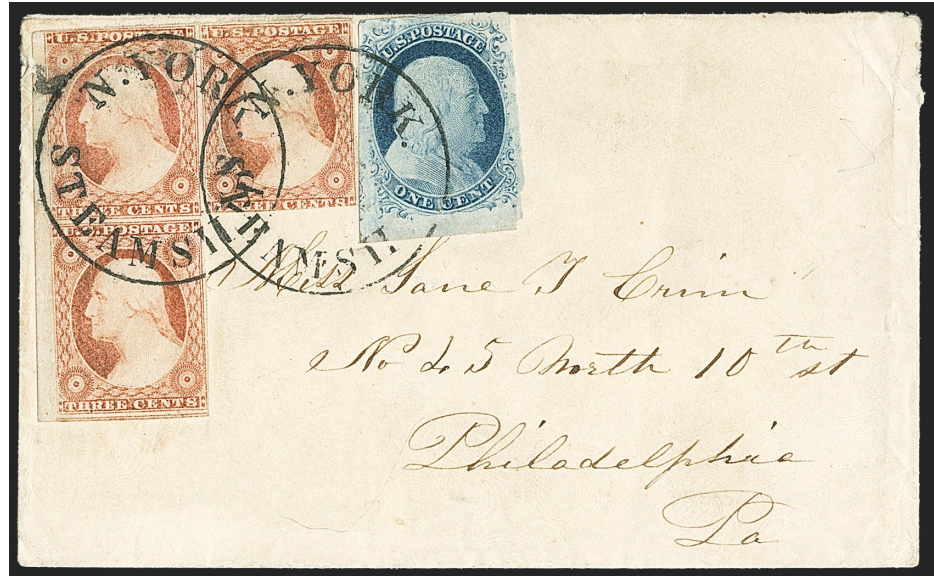 U.S. POSTAGE
THREE CENTS
U.S. POSTAGE
THREE CENTS
U.S. POSTAGE
ONE CENT
U.S. POSTAGE
THREE CENTS
N. YORK.
STEAMSH
N. YORK.
STEAMSH
Miss Jane T Crim
No 45 North 10th st
Philadelphia
Pa